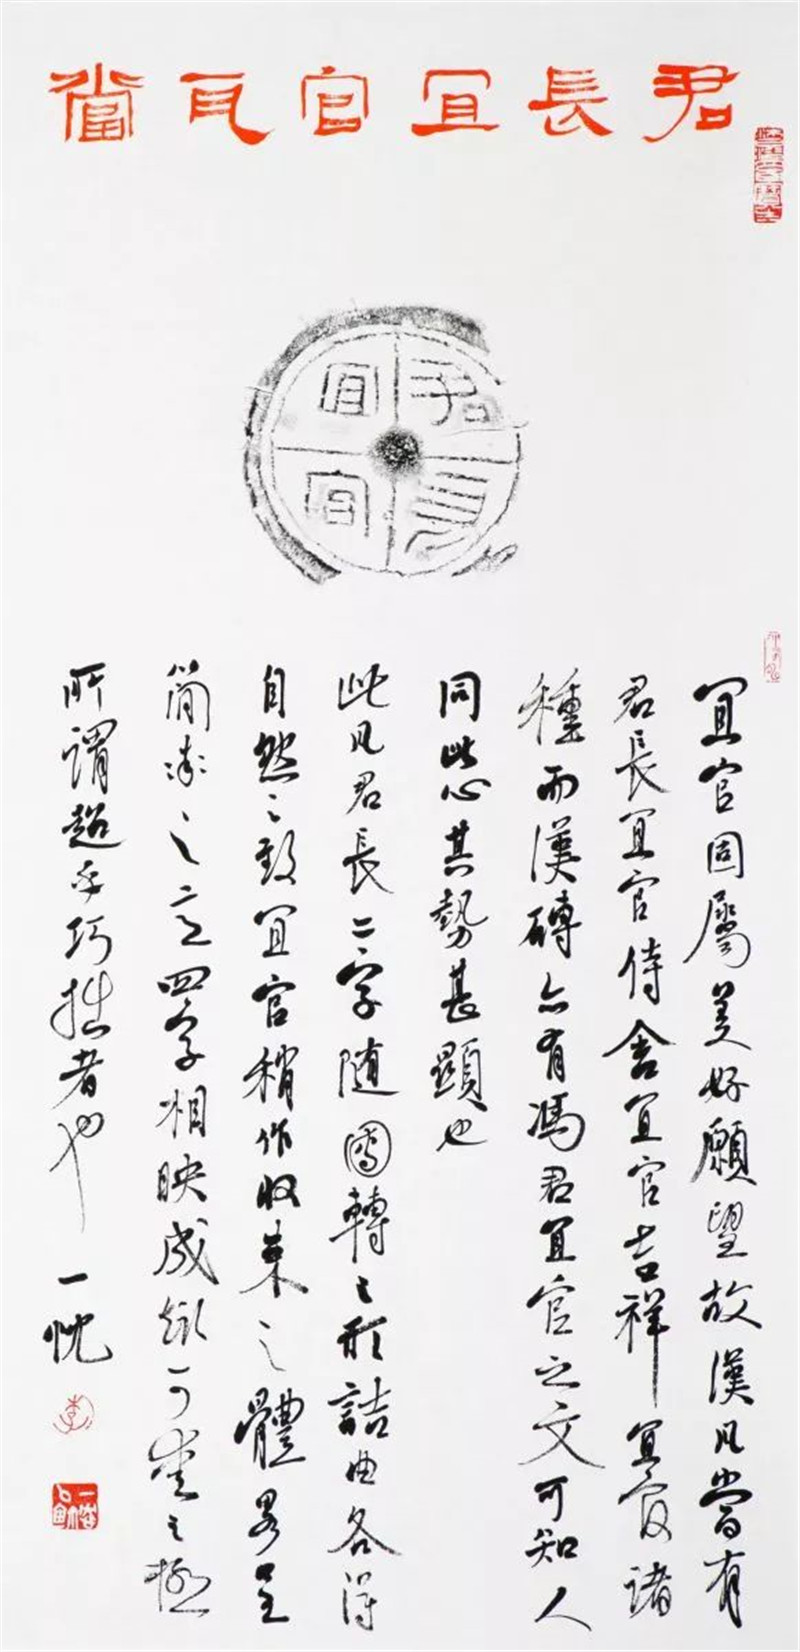 君長宜官瓦當
君長
宜官
宜官固屬美好願望故漢瓦當有
君長宜官侍舍宜官吉祥宜官諸
種而漢磚亦有馮君宜官之文可知人
同此心其勢甚顯也
此瓦君長二字隨圓轉之形詰曲各得
自然之致宜官稍作收束之體畧呈
簡率之意四字相映成趣可愛之極
所謂超乎巧拙者也 一忱
李